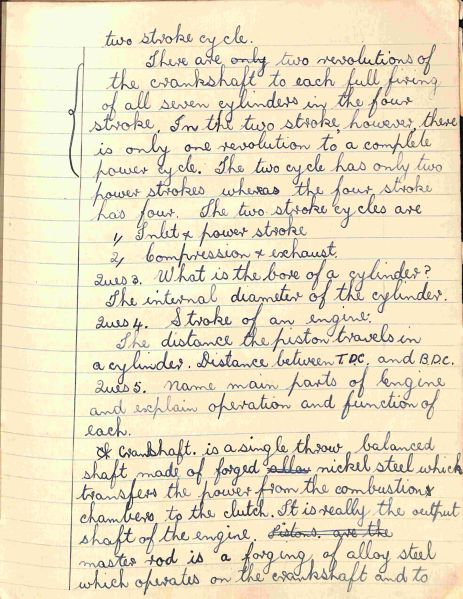 two stroke cycle.
There are only two revolutions of
the crankshaft to each full firing
of all seven cylinders in the four
stroke. In the two stroke, however, there
is only one revolution to a complete
power cycle. The two cycle has only two
power strokes whereas the four stroke
has four. The two stroke cycles are
1, Inlet & power stroke
2, Compression & exhaust.
Ques 3. What is the bore of a cylinder?
The internal diameter of the cylinder.
Ques 4. Stroke of an engine.
The distance the piston travels in
a cylinder. Distance between T.D.C. and B.D.C.
Ques 5. Name main parts of Engine
and explain operation and function of
each.
Crankshaft. is a single throw balanced
shaft made of forged alloy nickel steel which
transfers the power from the combustion
chambers to the clutch. It is really the output
shaft of the engine. Pistons. are the
master rod is a forging of alloy steel
which operates on the crankshaft and to